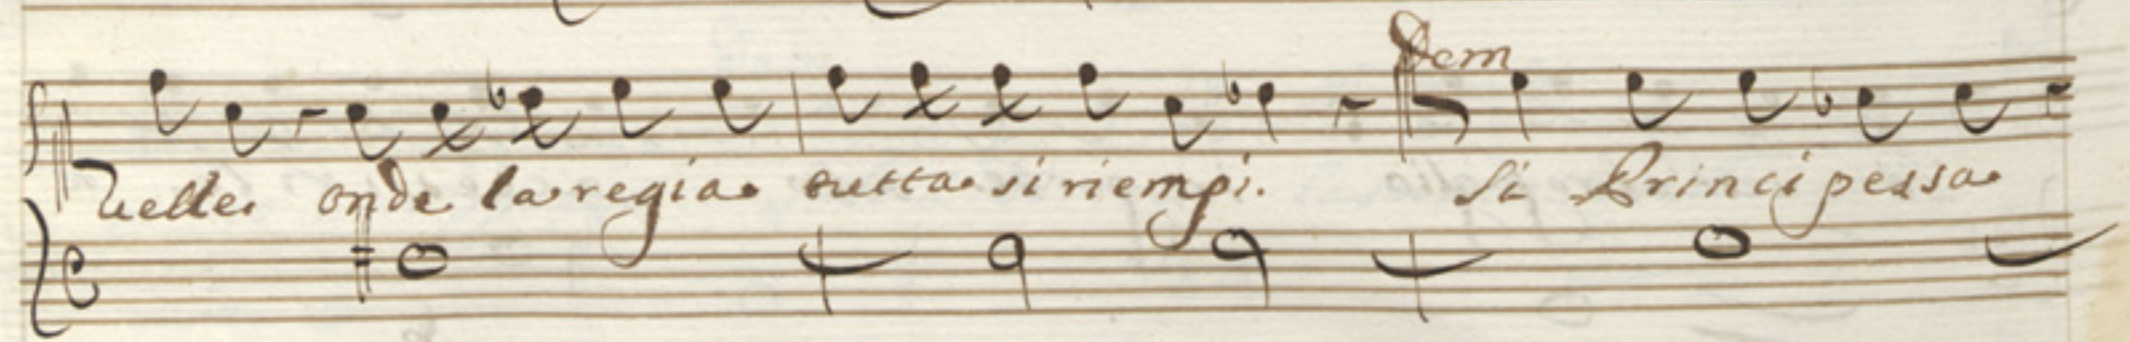 Dem
uelle onde la regia tutta si riempi. Si Principessa